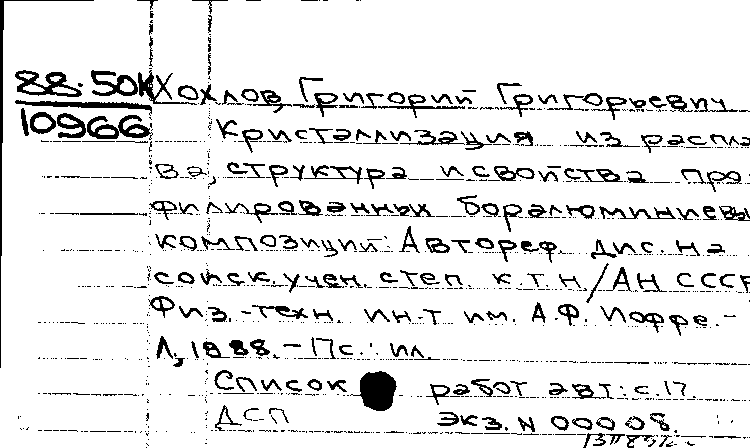 88-50К Хохлов, Григорий Григорьевич
10966
Кристаллизация из распла
ва, структура и свойства про
филированных боралюминиевы
композиций: Автореф. дис. на
соиск. учен. степ. к.т.н./АН СССР
Физ.-техн. ин-т им. А.Ф. Иоффе.-
Л., 1988.-17с.: ил.
Список работ авт.: с.17.
ДСП экз. N 00008.